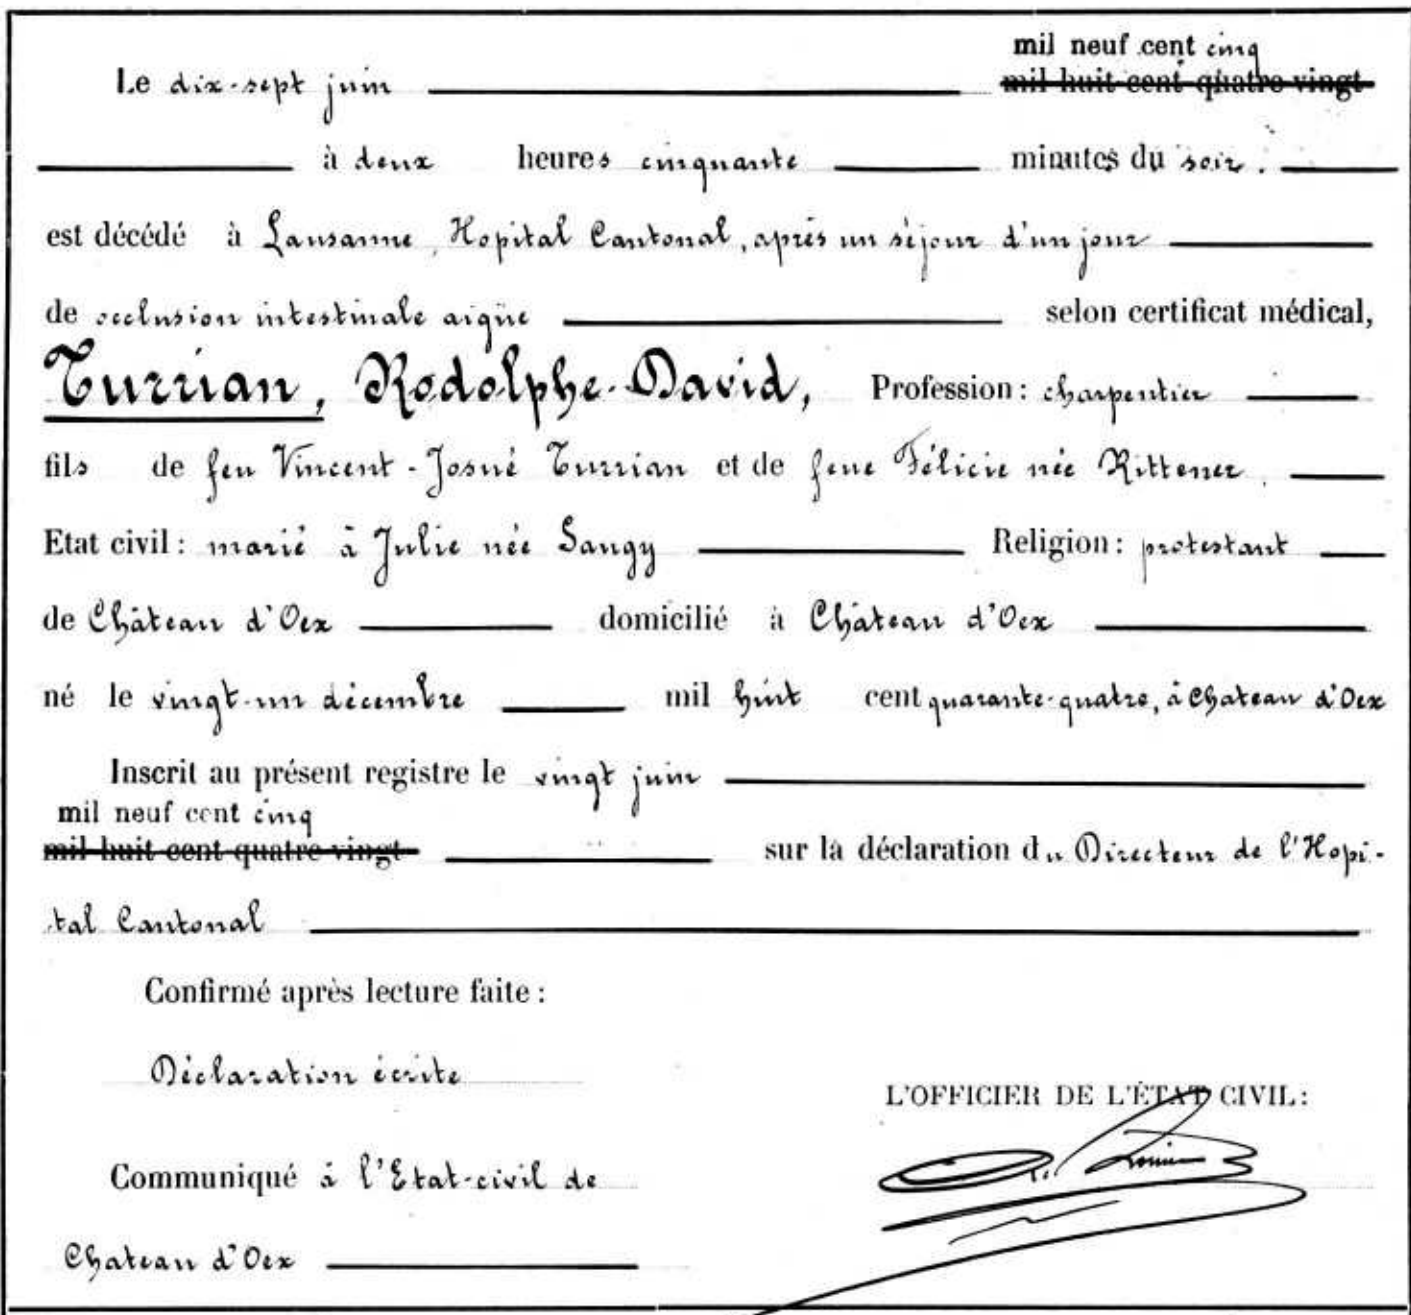 mil neuf cent cinq
Le dix-sept juin mil huit cent quatre-vingt
à deux heures cinquante minutes du soir.
est décédé à Lausanne, Hopital Cantonal, après un séjour d'un jour
de occlusion intestinale aigüe selon certificat médical,
Turrian, Rodolphe-David, Profession: charpentier
fils de feu Vincent-Josué Turrian et de feue Félicie née Rittener.
Etat civil: marié à Julie née Saugy Religion: protestant
de Château d'Oex domicilié à Château d'Oex
né le vingt-un décembre mil huit cent quarante-quatre, à Chateau d'Oex
Inscrit au présent registre le vingt juin
mil neuf cent cinq
mil huit cent quatre-vingt sur la déclaration du Directeur de l'Hopi-
tal Cantonal
Confirmé après lecture faite:
Déclaration écrite
L'OFFICIER DE L'ÉTAT CIVIL:
Communiqué à l'Etat-civil de
Chateau d'Oex